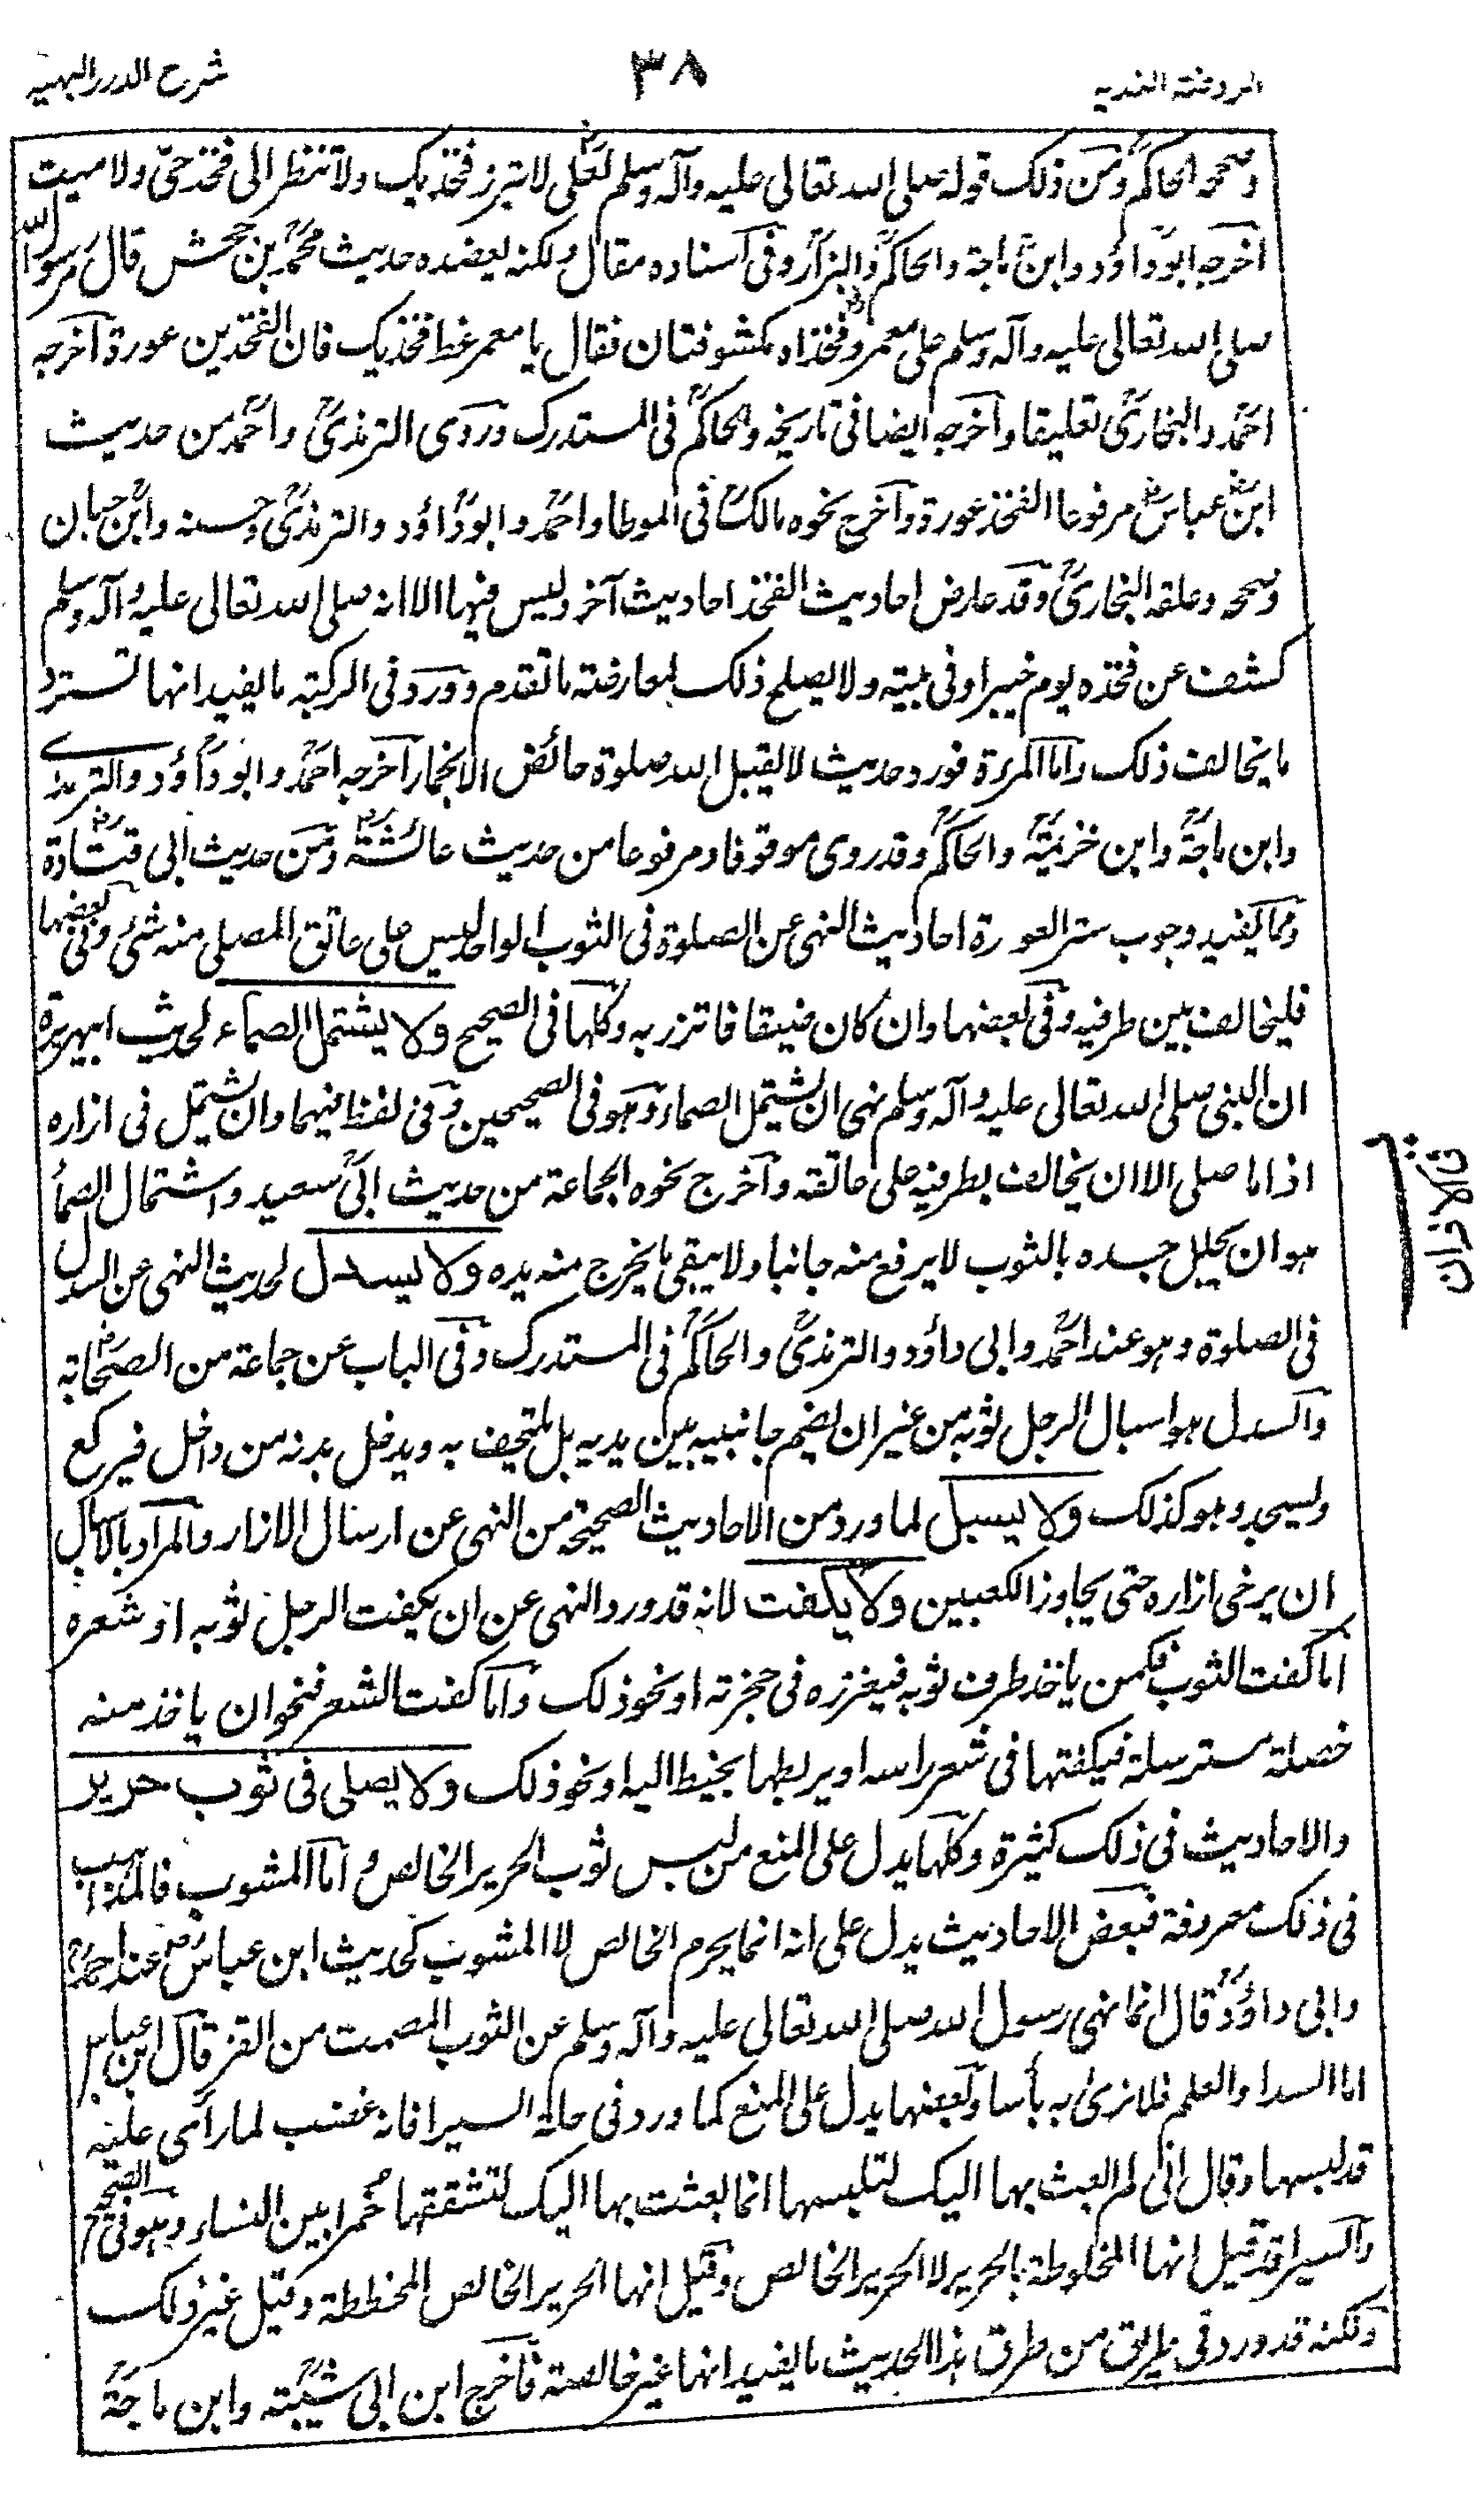 الروضة الندية
٣٨
شرح الدرر البهية
وصححه الحاكم ومن ذلك قوله صلى الله تعالى عليه وآله وسلم لعلى لا تبرز فخذيك ولا تنظر الى فخذ حى ولا ميت
اخرجه ابو داؤد وابن ماجة والحاكم والبزار وفى اسناده مقال ولكنه يعضده حديث محمد بن جحش قال مر رسول الله
صلى الله تعالى عليه وآله وسلم على معمر وفخذاه مكشوفتان فقال يا معمر غط فخذيك فان الفخذين عورة اخرجه
احمد والبخارى تعليقا واخرجه ايضا فى تاريخه والحاكم فى المستدرك وروى الترمذى واحمد من حديث
ابن عباس مرفوعا الفخذ عورة واخرج نحوه مالك فى الموطا واحمد وابو داؤد والترمذى وحسنه وابن حبان
وصححه وعلقه البخارى وقد عارض احاديث الفخذ احاديث آخر وليس فيها الا انه صلى الله تعالى عليه وآله وسلم
كشف عن فخذه يوم خيبر او فى بيته ولا يصلح ذلك لمعارضته ما تقدم وورد فى الركبة ما يفيد انها تستر و
ما يخالف ذلك واما المرءة فورد حديث لا يقبل الله صلوة حائض الا بخمار اخرجه احمد وابو داؤد والترمذى
وابن ماجة وابن خزيمة والحاكم وقد روى موقوفا ومرفوعا من حديث عائشة ومن حديث ابى قتادة
ومما يفيد وجوب ستر العورة احاديث النهى عن الصلوة فى الثوب الواحد ليس على عاتق المصلى منه شئ وفى بعضها
فليخالف بين طرفيه وفى بعضها وان كان ضيقا فاتزر به وكلها فى الصحيح ولا يشتمل الصماء لحديث ابى هريرة
ان النبى صلى الله تعالى عليه وآله وسلم نهى ان يشتمل الصماء وهو فى الصحيحين وفى لفظ فيهما وان يشتمل فى ازاره
اذا ما صلى الا ان يخالف بطرفيه على عاتقه واخرج نحوه الجماعة من حديث ابى سعيد واشتمال الصمأ
هو ان يجلل جسده بالثوب لا يرفع منه جانبا ولا يبقى ما يخرج منه يده ولا يسدل لحديث النهى عن السدل
فى الصلوة وهو عند احمد وابى داؤد والترمذى والحاكم فى المستدرك وفى الباب عن جماعة من الصحابة
والسدل هو اسبال الرجل ثوبه من غير ان يضم جانبيه بين يديه بل يلتحف به ويدخل يديه من داخل فيركع
ويسجد وهو كذلك ولا يسبل لما ورد من الاحاديث الصحيحة من النهى عن ارسال الازار والمراد بالاسبال
ان يرخى ازاره حتى يجاوز الكعبين ولا يكفت لانه قد ورد النهى عن ان يكفت الرجل ثوبه او شعره
اما كفت الثوب فكمن ياخذ طرف ثوبه فيغرزه فى حجزته او نحو ذلك واما كفت الشعر فنحو ان ياخذ منه
خصلة مسترسلة فيكفتها فى شعر راسه او يربطها بخيط اليه او نحو ذلك ولا يصلى فى ثوب حرير
والاحاديث فى ذلك كثيرة وكلها يدل على المنع من لبس ثوب الحرير الخالص واما المشوب فالمذاهب
فى ذلك معروفة فبعض الاحاديث يدل على انه انما يحرم الخالص لا المشوب كحديث ابن عباس عند احمد
وابى داؤد قال انما نهى رسول الله صلى الله تعالى عليه وآله وسلم عن الثوب المصمت من القز قال ابن عباس
اما السدا والعلم فلا نرى به بأسا وبعضها يدل على المنع كما ورد فى حلة السيرا فانه غضب لما رأى عليه
قد لبسها وقال انى لم ابعث بها اليك لتلبسها انما بعثت بها اليك لتشققها خمرا بين النساء وهو فى الصحيح
والسيرا قد قيل انها المخلوطة بالحرير لا الحرير الخالص وقيل انها الحرير الخالص المخططة وقيل غير ذلك
ولكنه قد ورد فى طريق من طرق هذا الحديث ما يفيد انها غير خالصة فاخرج ابن ابى شيبة وابن ماجة